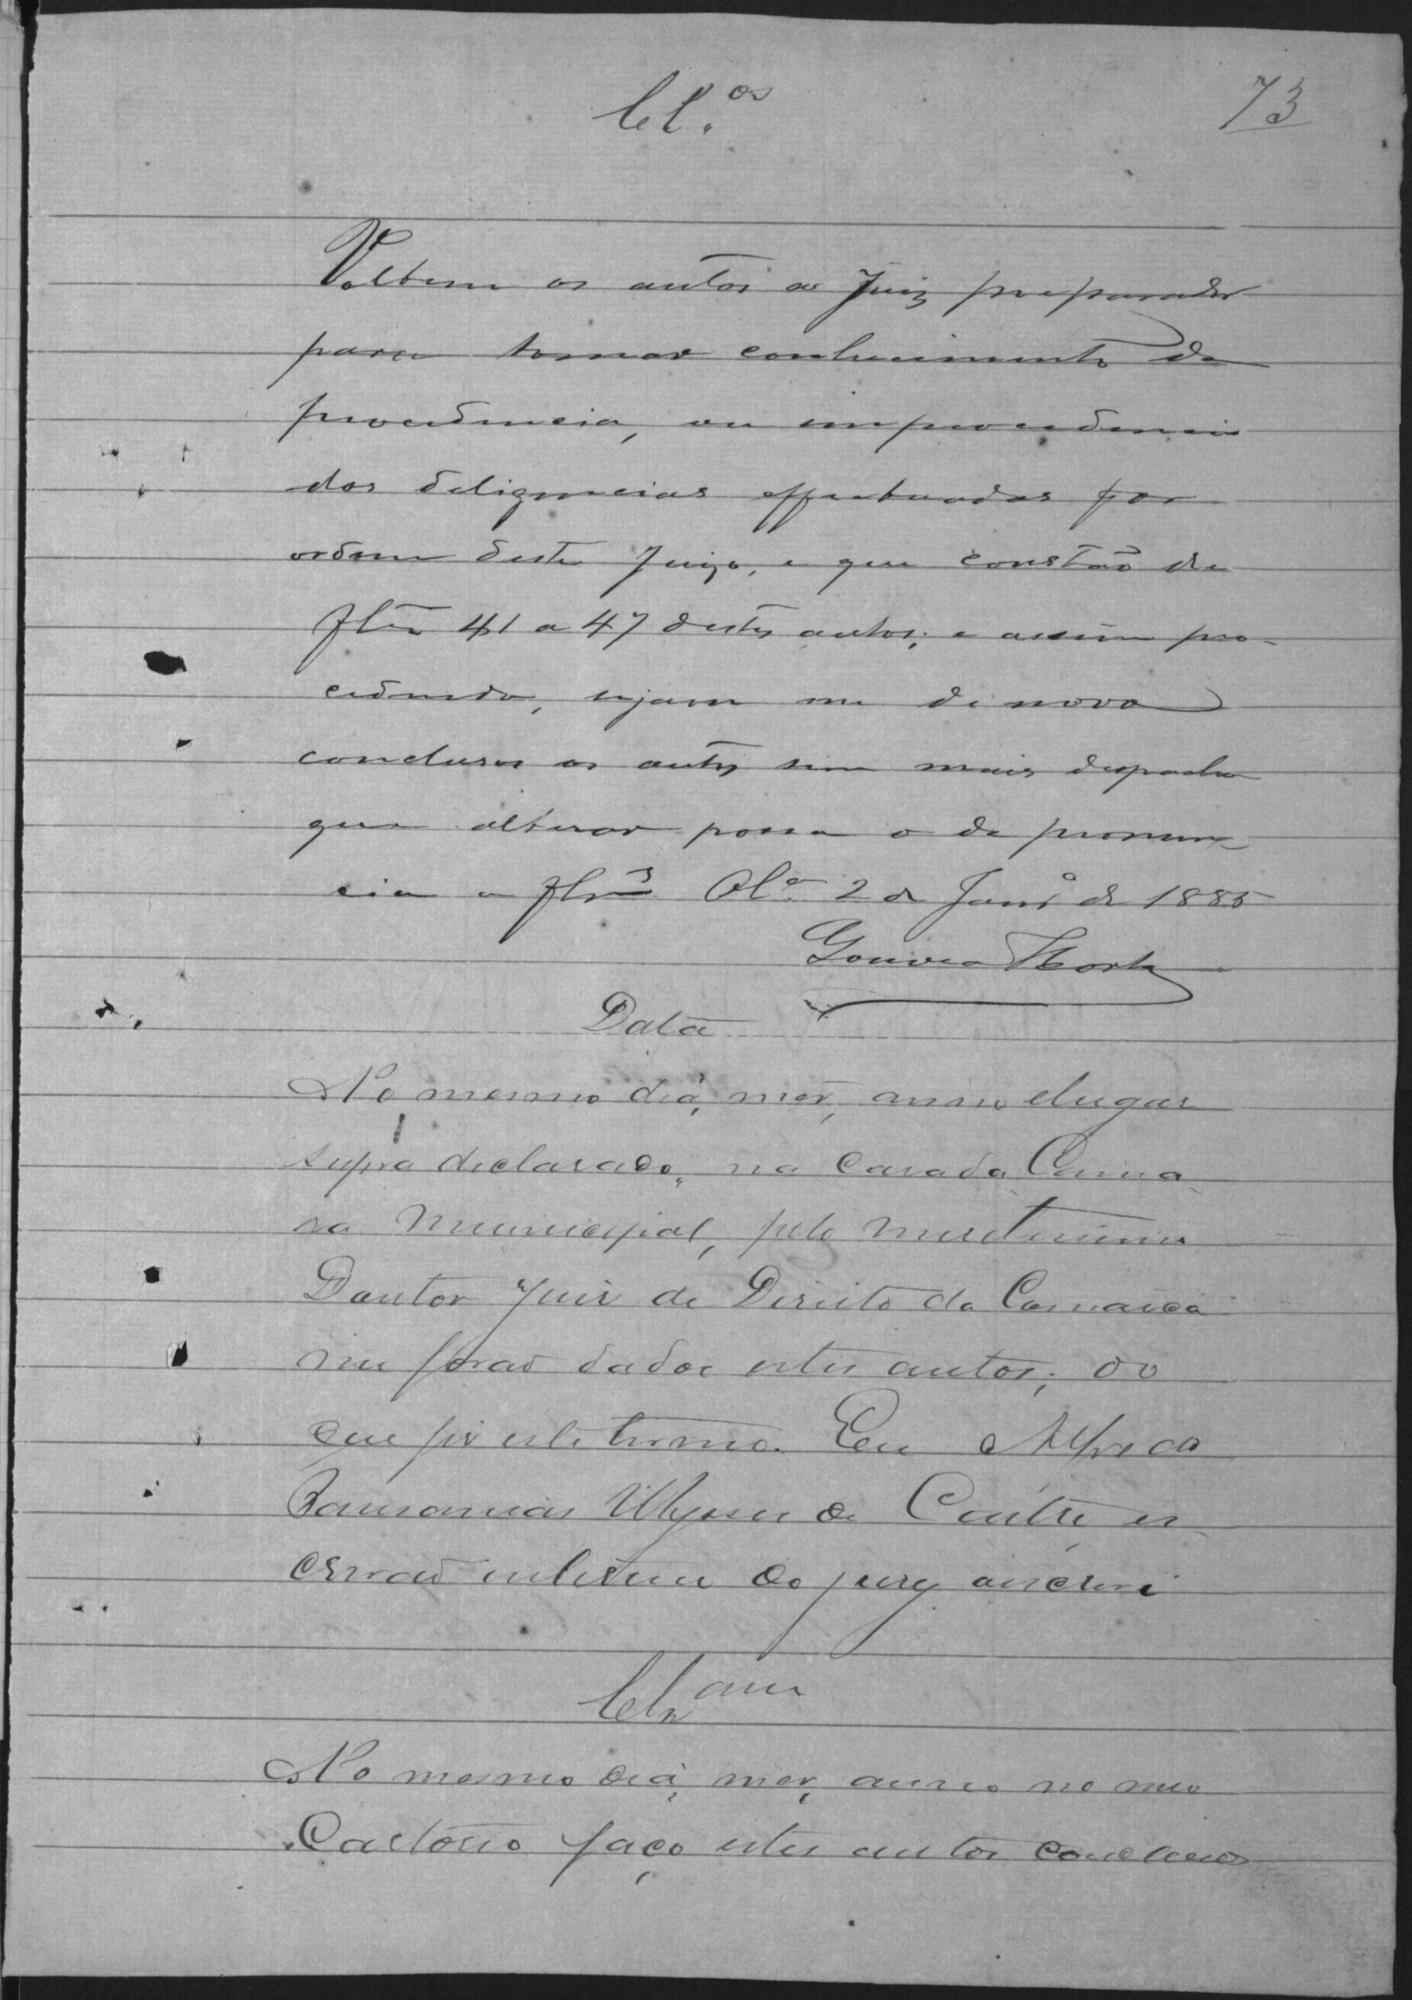 Cl.os
73
Voltem os autos ao Juiz preparador
para tomar conhecimento da
procedencia, ou improcedencia
das deligencias effectuadas por
ordem deste Juizo, e que constão de
fls 41 a 47 destes autos; e assim pro-
cedendo, sejam me de novo
conclusos os autos sem mais despacho
que alterar possa o de pronun-
cia a fls 2 de Janrº de 1885
Gouvea Horta
Data
No mesmo dia, mez, anno elugar
supra declarado, na Casada Cama
ra Municipal, pelo meritissimo
Doutor Juiz de Direito da Comarca
me forao dados estes autos; do
que fiz este termo. Eu Alfredo
Pausanias Ulysses de Castro es-
crivao interino do jury oescrevi
Clzam
No mesmo dia, mez, anno no meo
Cartorio faço estes autos conclusos